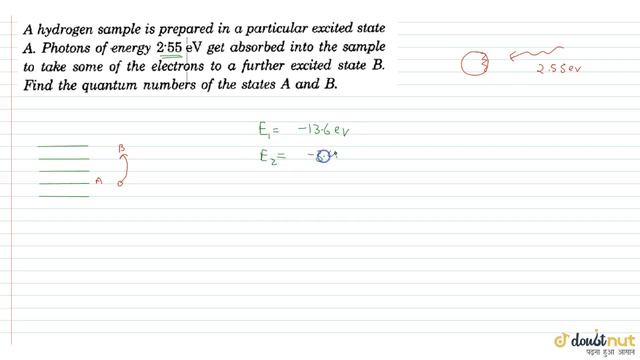 A hydrogen sample is prepared in a particular excited state
A. Photons of energy 2·55 eV get absorbed into the sample
to take some of the electrons to a further excited state B.
Find the quantum numbers of the states A and B.
2.55 ev
E1 = -13.6 ev
B
E2 =
A
doubtnut
पढ़ना हुआ आसान